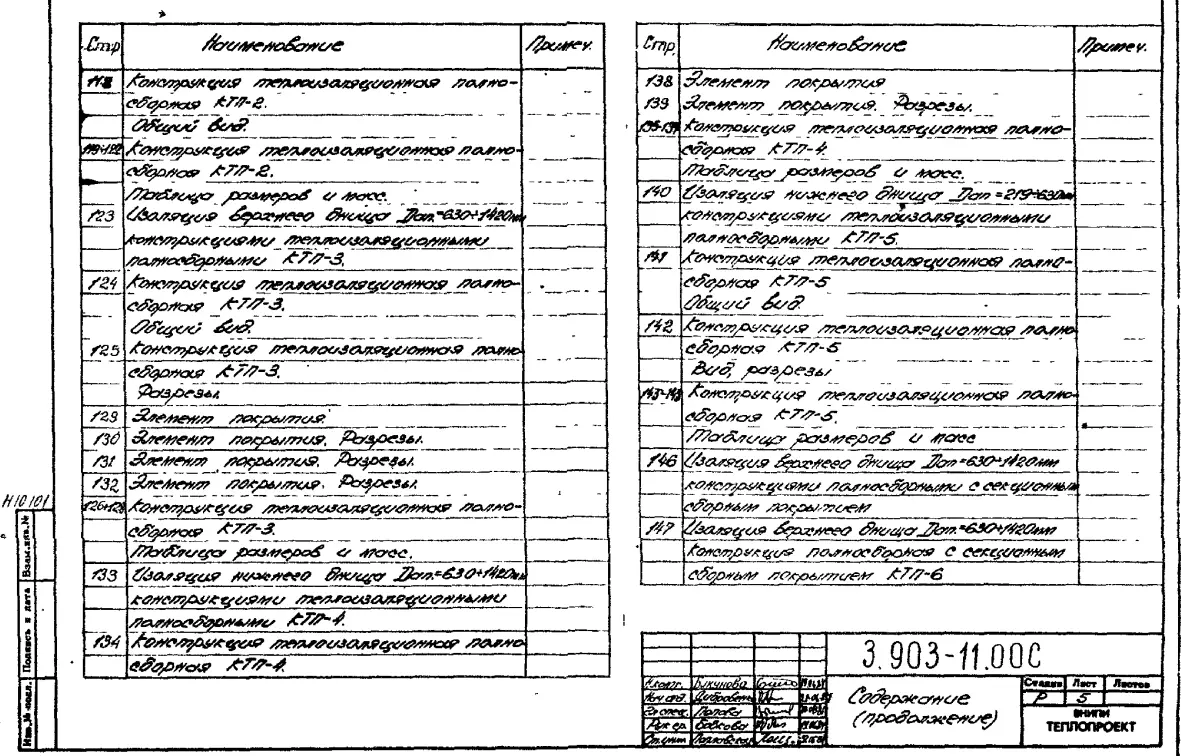 Стр. Наименование Примеч.
118 Конструкция теплоизоляционная полно-
сборная КТП-2.
Общий вид.
119÷122 Конструкция теплоизоляционная полно-
сборная КТП-2.
Таблица размеров и масс.
123 Изоляция верхнего днища Dап.=630÷1420мм
конструкциями теплоизоляционными
полносборными КТП-3.
124 Конструкция теплоизоляционная полно-
сборная КТП-3.
Общий вид.
125 Конструкция теплоизоляционная полно-
сборная КТП-3.
Разрезы.
129 Элемент покрытия.
130 Элемент покрытия. Разрезы.
131 Элемент покрытия. Разрезы.
132 Элемент покрытия. Разрезы.
126÷128 Конструкция теплоизоляционная полно-
сборная КТП-3.
Таблица размеров и масс.
133 Изоляция нижнего днища Dап.=630÷1420мм
конструкциями теплоизоляционными
полносборными КТП-4.
134 Конструкция теплоизоляционная полно-
сборная КТП-4.
Стр. Наименование Примеч.
138 Элемент покрытия
139 Элемент покрытия. Разрезы.
135-137 Конструкция теплоизоляционная полно-
сборная КТП-4.
Таблица размеров и масс.
140 Изоляция нижнего днища Dап=219÷630мм
конструкциями теплоизоляционными
полносборными КТП-5.
141 Конструкция теплоизоляционная полно-
сборная КТП-5
Общий вид
142 Конструкция теплоизоляционная полно-
сборная КТП-5
Вид, разрезы
Конструкция теплоизоляционная полно-
сборная КТП-5.
Таблица размеров и масс
146 Изоляция верхнего днища Dап=630÷1420мм
конструкциями полносборными с секционным
сборным покрытием
147 Изоляция верхнего днища Dап=630÷1420мм
Конструкция полносборная с секционным
сборным покрытием КТП-6
Н10101
Взам.инв.№
Подпись и дата
Инв.№ подл.
3.903-11.00С
Н.контр. Букунова
Нач.отд.
Гл.спец. Попова
Рук.гр. Бобкова
Ст.инж.
Содержание
(продолжение)
Стадия Лист Листов
Р 5
ВНИПИ
ТЕПЛОПРОЕКТ